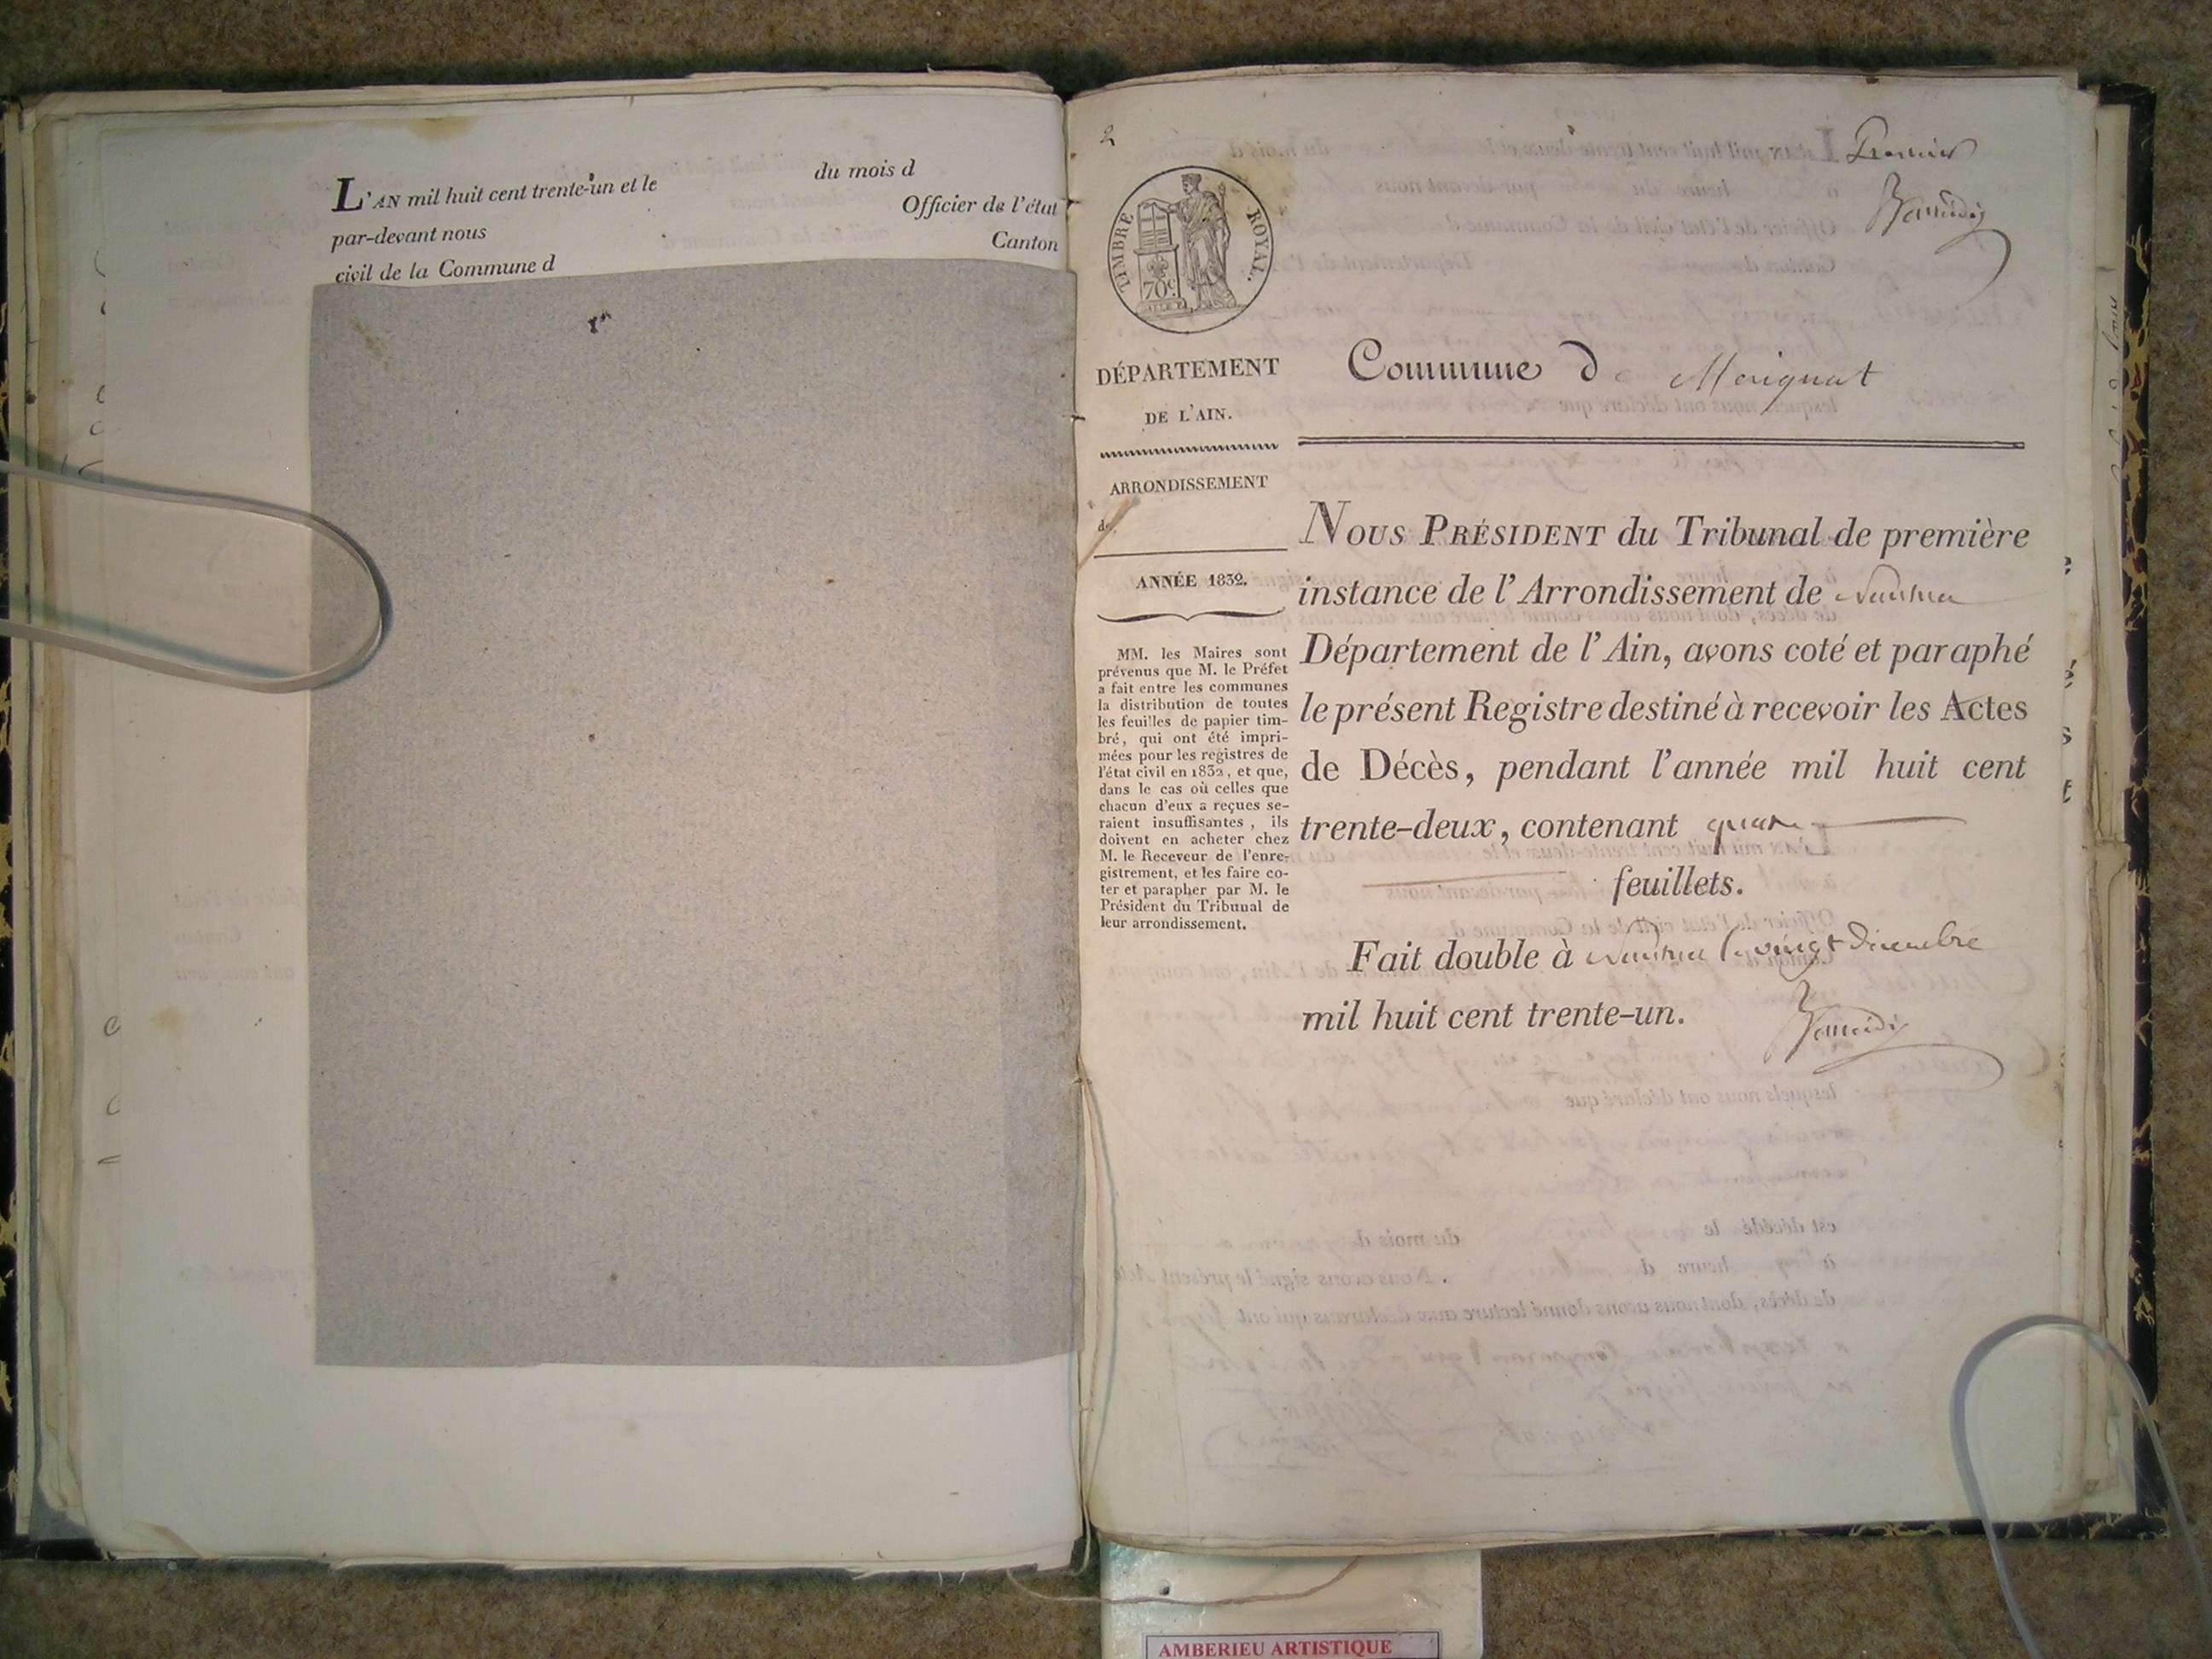 L'AN mil huit cent trente-un et le du mois d
par-devant nous Officier de l'état
civil de la Commune d Canton
2
Premier
TIMBRE ROYAL.
70c
DÉPARTEMENT
DE L'AIN.
ARRONDISSEMENT
de
ANNÉE 1832.
MM. les Maires sont
prévenus que M. le Préfet
a fait entre les communes
la distribution de toutes
les feuilles de papier tim-
bré, qui ont été impri-
mées pour les registres de
l'état civil en 1832, et que,
dans le cas où celles que
chacun d'eux a reçues se-
raient insuffisantes, ils
doivent en acheter chez
M. le Receveur de l'enre-
gistrement, et les faire co-
ter et parapher par M. le
Président du Tribunal de
leur arrondissement.
Commune de Mérignat
NOUS PRÉSIDENT du Tribunal de première
instance de l'Arrondissement de Nantua
Département de l'Ain, avons coté et paraphé
le présent Registre destiné à recevoir les Actes
de Décès, pendant l'année mil huit cent
trente-deux, contenant quatre
feuillets.
Fait double à Nantua le vingt Décembre
mil huit cent trente-un.
AMBERIEU ARTISTIQUE